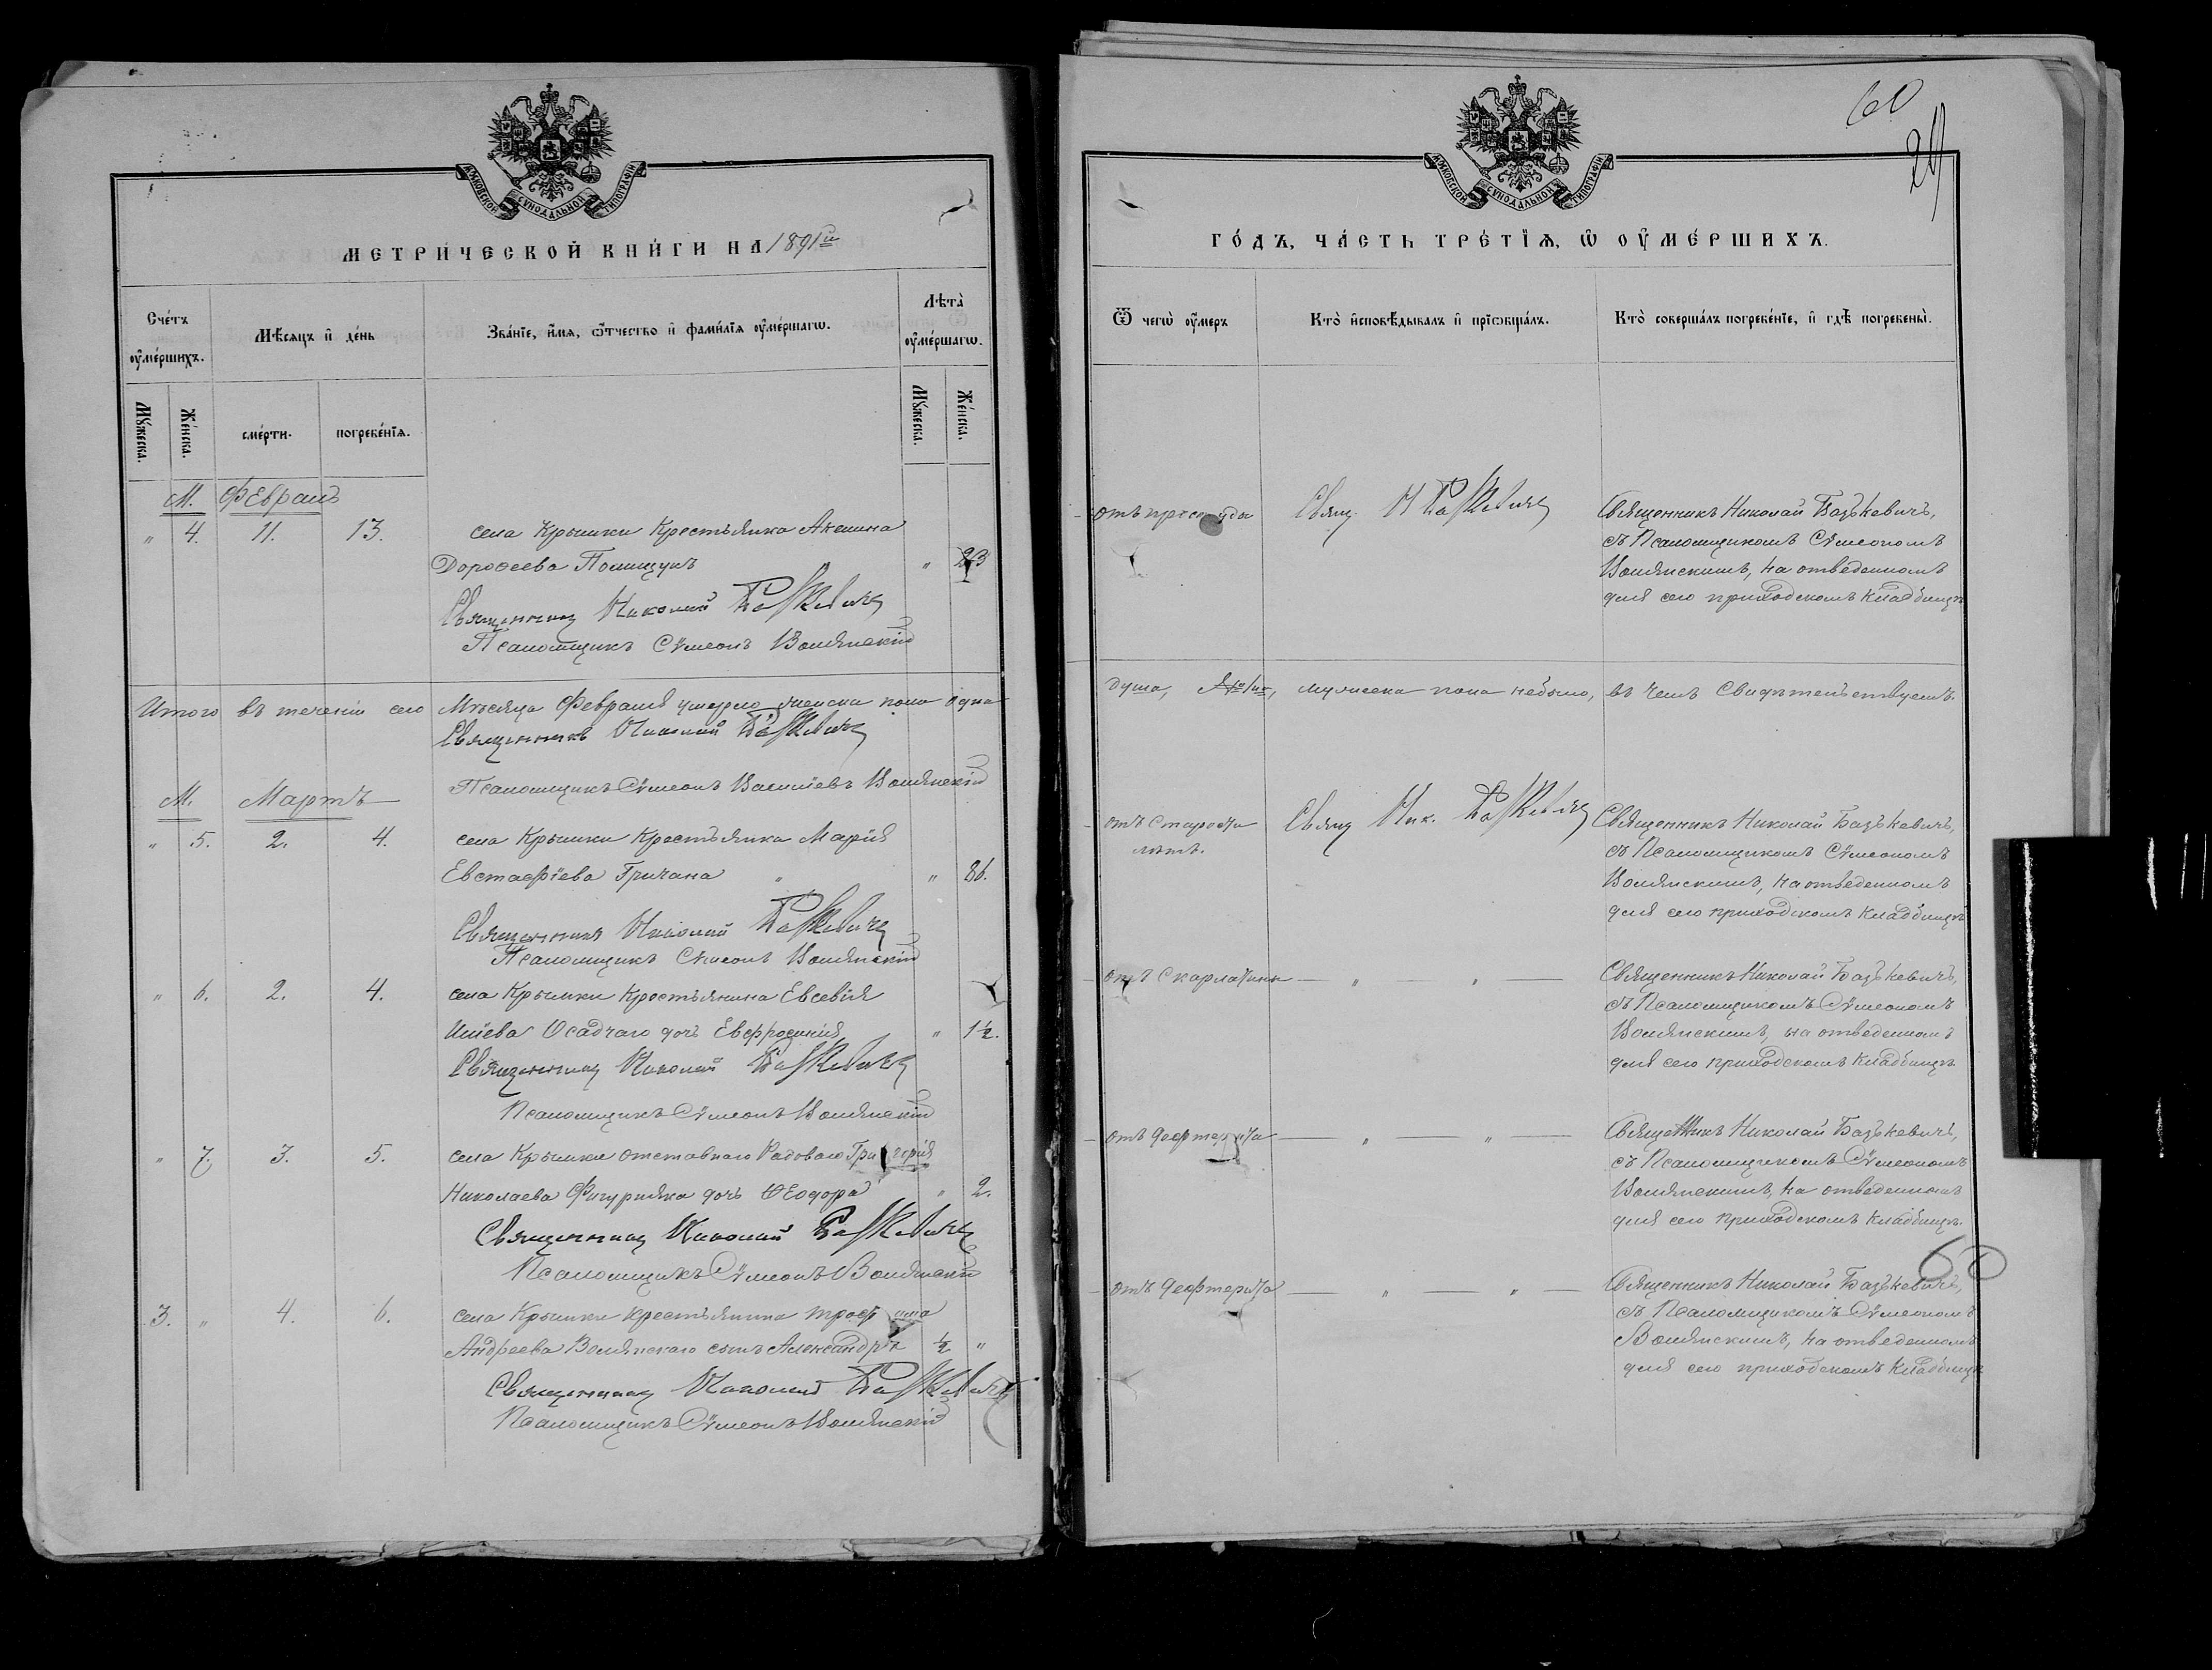 60
29
МЕТРИЧЕСКОЙ КНИГИ НА 1891й
Счетъ оумершихъ.
Мужеска.
Женска.
Мѣсяцъ и день
смерти.
погребенїя.
Званїе, имя, ѿтчество и фамилїя оумершагѡ.
Лѣта оумершагѡ.
Мужеска.
Женска.
М. Февраль
" 4. 11. 13. села Крымки Крестьянка Акилина
Дорофеева Полищукъ "
Священникъ Николай Базькевичъ
Псаломщикъ Сѵмеонъ Волянскій
Итого въ теченіи сего Мѣсяца Февраля умерло женска пола одна
Священникъ Николай Базькевичъ
Псаломщикъ Сѵмеонъ Васильевъ Волянскій
М. Мартъ
" 5. 2. 4. села Крымки Крестьянка Марія
Евстафіева Гричана " " 86.
Священникъ Николай Базькевичъ
Псаломщикъ Сѵмеонъ Волянскій
" 6. 2. 4. села Крымки Крестьянина Евсевія
Иліева Осадчаго дочь Евфросинія " 1½.
Священникъ Николай Базькевичъ
Псаломщикъ Сѵмеонъ Волянскій
" 7. 3. 5. села Крымки отставнаго Рядоваго Григорія
Николаева Фигурняка дочь Ѳеодора " 2.
Священникъ Николай Базькевичъ
Псаломщикъ Сѵмеонъ Волянскій
3. " 4. 6. села Крымки крестьянина Трофима
Андреева Волянскаго сынъ Александръ ½ "
Священникъ Николай Базькевичъ
Псаломщикъ Сѵмеонъ Волянскій
ГОДЪ, ЧАСТЬ ТРЕТЇЯ, Ѡ ОУМЕРШИХЪ.
Ѿ чегѡ оумеръ
Кто исповѣдывалъ и прїѡбщалъ.
Кто совершалъ погребенїе, и гдѣ погребены.
отъ простуды Свящ. Н Базькевичъ Священникъ Николай Базькевичъ,
съ Псаломщикомъ Сѵмеономъ
Волянскимъ, на отведенномъ
для сего приходскомъ Кладбищѣ
душа, мужеска пола небыло, въ чемъ Свидѣтельствуемъ.
отъ Старости Свящ Ник. Базькевичъ Священникъ Николай Базькевичъ,
лѣтъ. съ Псаломщикомъ Сѵмеономъ
Волянскимъ, на отведенномъ
для сего приходскомъ Кладбищѣ
отъ Скарлатины — " — " — Священникъ Николай Базькевичъ,
съ Псаломщикомъ Сѵмеономъ
Волянскимъ, на отведенномъ
для сего приходскомъ Кладбищѣ
отъ Дефтерита — " — " — Священникъ Николай Базькевичъ,
съ Псаломщикомъ Сѵмеономъ
Волянскимъ, на отведенномъ
для сего приходскомъ Кладбищѣ.
60
отъ Дефтерита — " — " — Священникъ Николай Базькевичъ,
съ Псаломщикомъ Сѵмеономъ
Волянскимъ, на отведенномъ
для сего приходскомъ Кладбищѣ